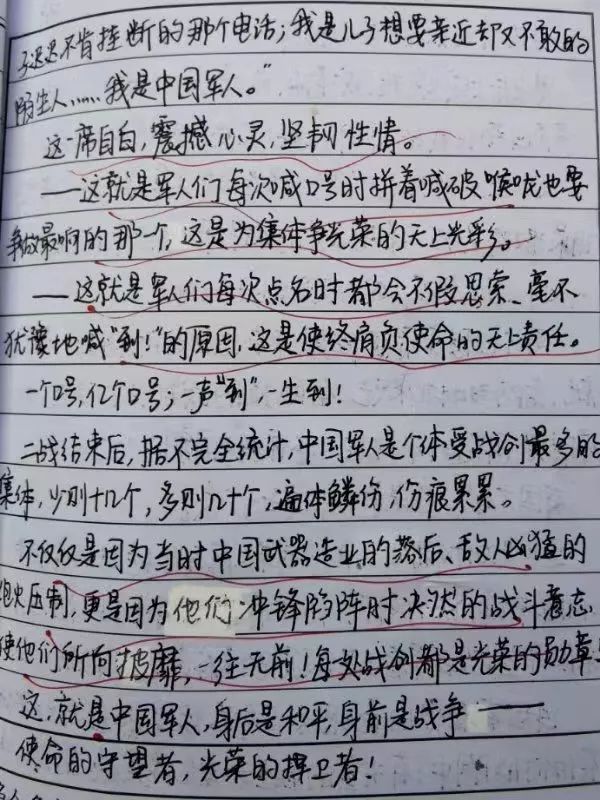 子迟迟不肯挂断的那个电话；我是儿子想要亲近却又不敢的
陌生人……我是中国军人。”
这席自白，震撼心灵，坚韧性情。
——这就是军人们每次喊口号时拼着喊破喉咙也要
争做最响的那个，这是为集体争光荣的无上光彩。
——这就是军人们每次点名时都会不假思索、毫不
犹豫地喊“到！”的原因，这是使终肩负使命的无上责任。
一个口号，亿个口号；一声“到”，一生到！
二战结束后，据不完全统计，中国军人是个体受战创最多的
集体，少则十几个，多则几十个，遍体鳞伤，伤痕累累。
不仅仅是因为当时中国武器造业的落后、敌人凶猛的
炮火压制，更是因为他们冲锋陷阵时决然的战斗意志
使他们所向披靡，一往无前！每处战创都是光荣的勋章！
这，就是中国军人，身后是和平，身前是战争——
使命的守望者，光荣的捍卫者！